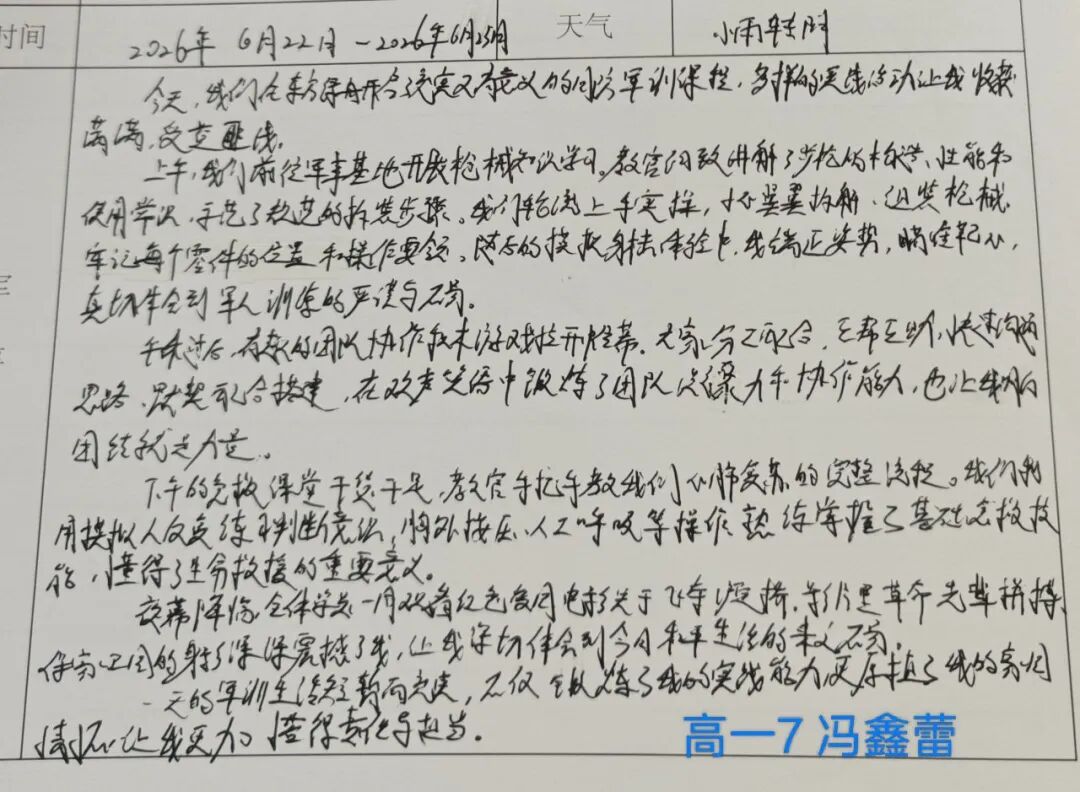 时间 2026年6月22日-2026年6月25日 天气 小雨转阴
今天,我们在军令充实又有意义的国防军训课程,多样的实践活动让我收获
满满,受益匪浅。
上午,我们前往军事基地开展枪械知识学习。教官细致讲解了步枪的构造、性能和
使用常识,示范了规范的拆装步骤。我们轮流上手实操,小心翼翼拆解、组装枪械,
牢记每个零件的位置和操作要领。随后的模拟射击体验中,我端正姿势,瞄准靶心,
真切体会到军人训练的严谨与不易。
午休过后,有趣的团队协作积木游戏拉开帷幕。大家分工配合,互帮互助,快速沟通
思路,默契配合搭建,在欢声笑语中锻炼了团队凝聚力和协作能力,也让我明白
团结就是力量。
下午的急救课堂干货十足,教官手把手教我们心肺复苏的完整流程。我们利
用模拟人反复练习判断意识,胸外按压,人工呼吸等操作,熟练掌握了基础急救技
能,懂得了生命救援的重要意义。
夜幕降临,全体学员一同观看红色爱国电影关于飞夺泸定桥,影片里革命先辈拼搏
保家卫国的身影深深震撼了我,让我深切体会到今日和平生活的来之不易。
一天的军训生活短暂而充实,不仅锻炼了我的实践能力更厚植了我的家国
情怀,让我更加懂得责任与担当。
高一7 冯鑫蕾